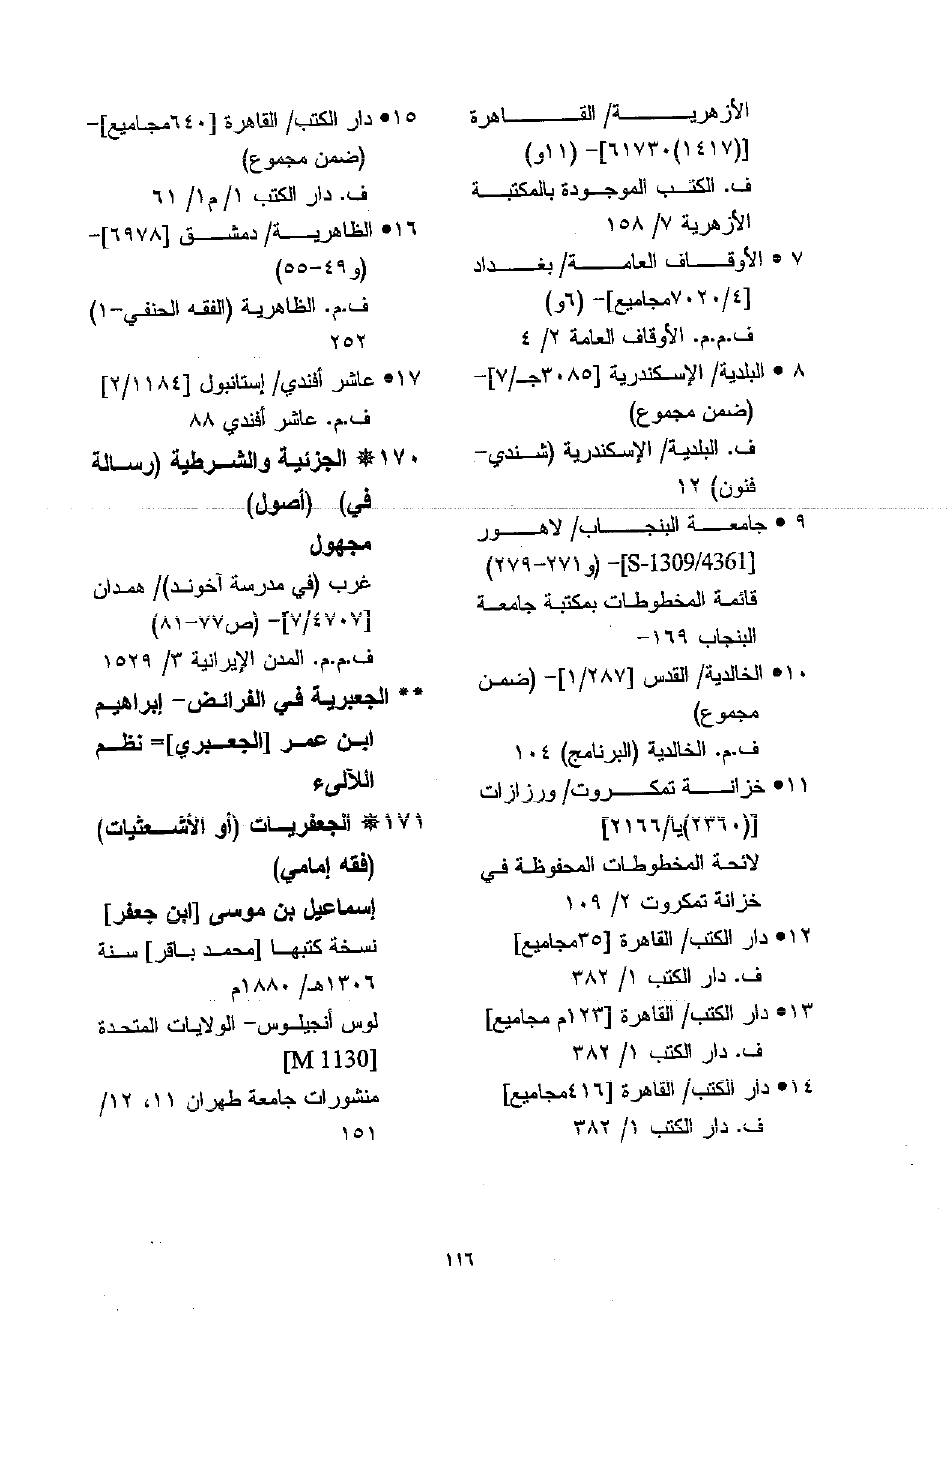 الأزهرية/ القاهرة
[(١٤١٧)٦١٧٣٠]- (١١و)
ف. الكتب الموجودة بالمكتبة
الأزهرية ٧/ ١٥٨
٧ • الأوقاف العامة/ بغداد
[٧٠٢٠/٤مجاميع]- (٦و)
ف.م.م. الأوقاف العامة ٢/ ٤
٨ • البلدية/ الإسكندرية [٣٠٨٥جـ/٧]-
(ضمن مجموع)
ف. البلدية/ الإسكندرية (شندي-
فنون) ١٢
٩ • جامعة البنجاب/ لاهور
[S-1309/4361]- (و٢٧١-٢٧٩)
قائمة المخطوطات بمكتبة جامعة
البنجاب ١٦٩-
١٠• الخالدية/ القدس [١/٢٨٧]- (ضمن
مجموع)
ف.م. الخالدية (البرنامج) ١٠٤
١١• خزانة تمكروت/ ورزازات
[(٢٣٦٠)يا/٢١٦٦]
لائحة المخطوطات المحفوظة في
خزانة تمكروت ٢/ ١٠٩
١٢• دار الكتب/ القاهرة [٣٥مجاميع]
ف. دار الكتب ١/ ٣٨٢
١٣• دار الكتب/ القاهرة [١٢٣م مجاميع]
ف. دار الكتب ١/ ٣٨٢
١٤• دار الكتب/ القاهرة [٤١٦مجاميع]
ف. دار الكتب ١/ ٣٨٢
١٥• دار الكتب/ القاهرة [٦٤٠مجاميع]-
(ضمن مجموع)
ف. دار الكتب ١/ م١/ ٦١
١٦• الظاهرية/ دمشق [٦٩٧٨]-
(و٤٩-٥٥)
ف.م. الظاهرية (الفقه الحنفي-١)
٢٥٢
١٧• عاشر أفندي/ إستانبول [٢/١١٨٤]
ف.م. عاشر أفندي ٨٨
١٧٠* الجزئية والشرطية (رسالة
في) (أصول)
مجهول
غرب (في مدرسة آخوند)/ همدان
[٧/٤٧٠٧]- (ص٧٧-٨١)
ف.م.م. المدن الإيرانية ٣/ ١٥٢٩
** الجعبرية في الفرائض- إبراهيم
ابن عمر [الجعبري]= نظم
اللآلىء
١٧١* الجعفريات (أو الأشعثيات)
(فقه إمامي)
إسماعيل بن موسى [ابن جعفر]
نسخة كتبها [محمد باقر] سنة
١٣٠٦هـ/ ١٨٨٠م
لوس أنجيلوس- الولايات المتحدة
[M 1130]
منشورات جامعة طهران ١١، ١٢/
١٥١
١١٦